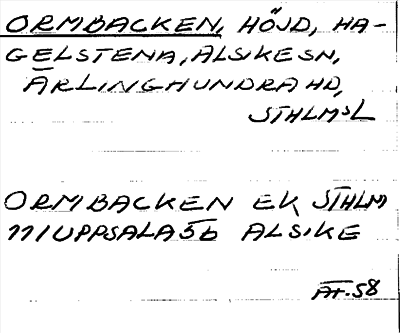 ORMBACKEN, HÖJD, HA-
GELSTENA, ALSIKE SN,
ÄRLINGHUNDRA HD,
STHLMSL
ORMBACKEN EK STHLM
11I UPPSALA 5b ALSIKE
AT.58